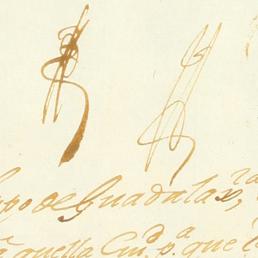 po de Guadalax.ra,
quella Ciu.d p.a que